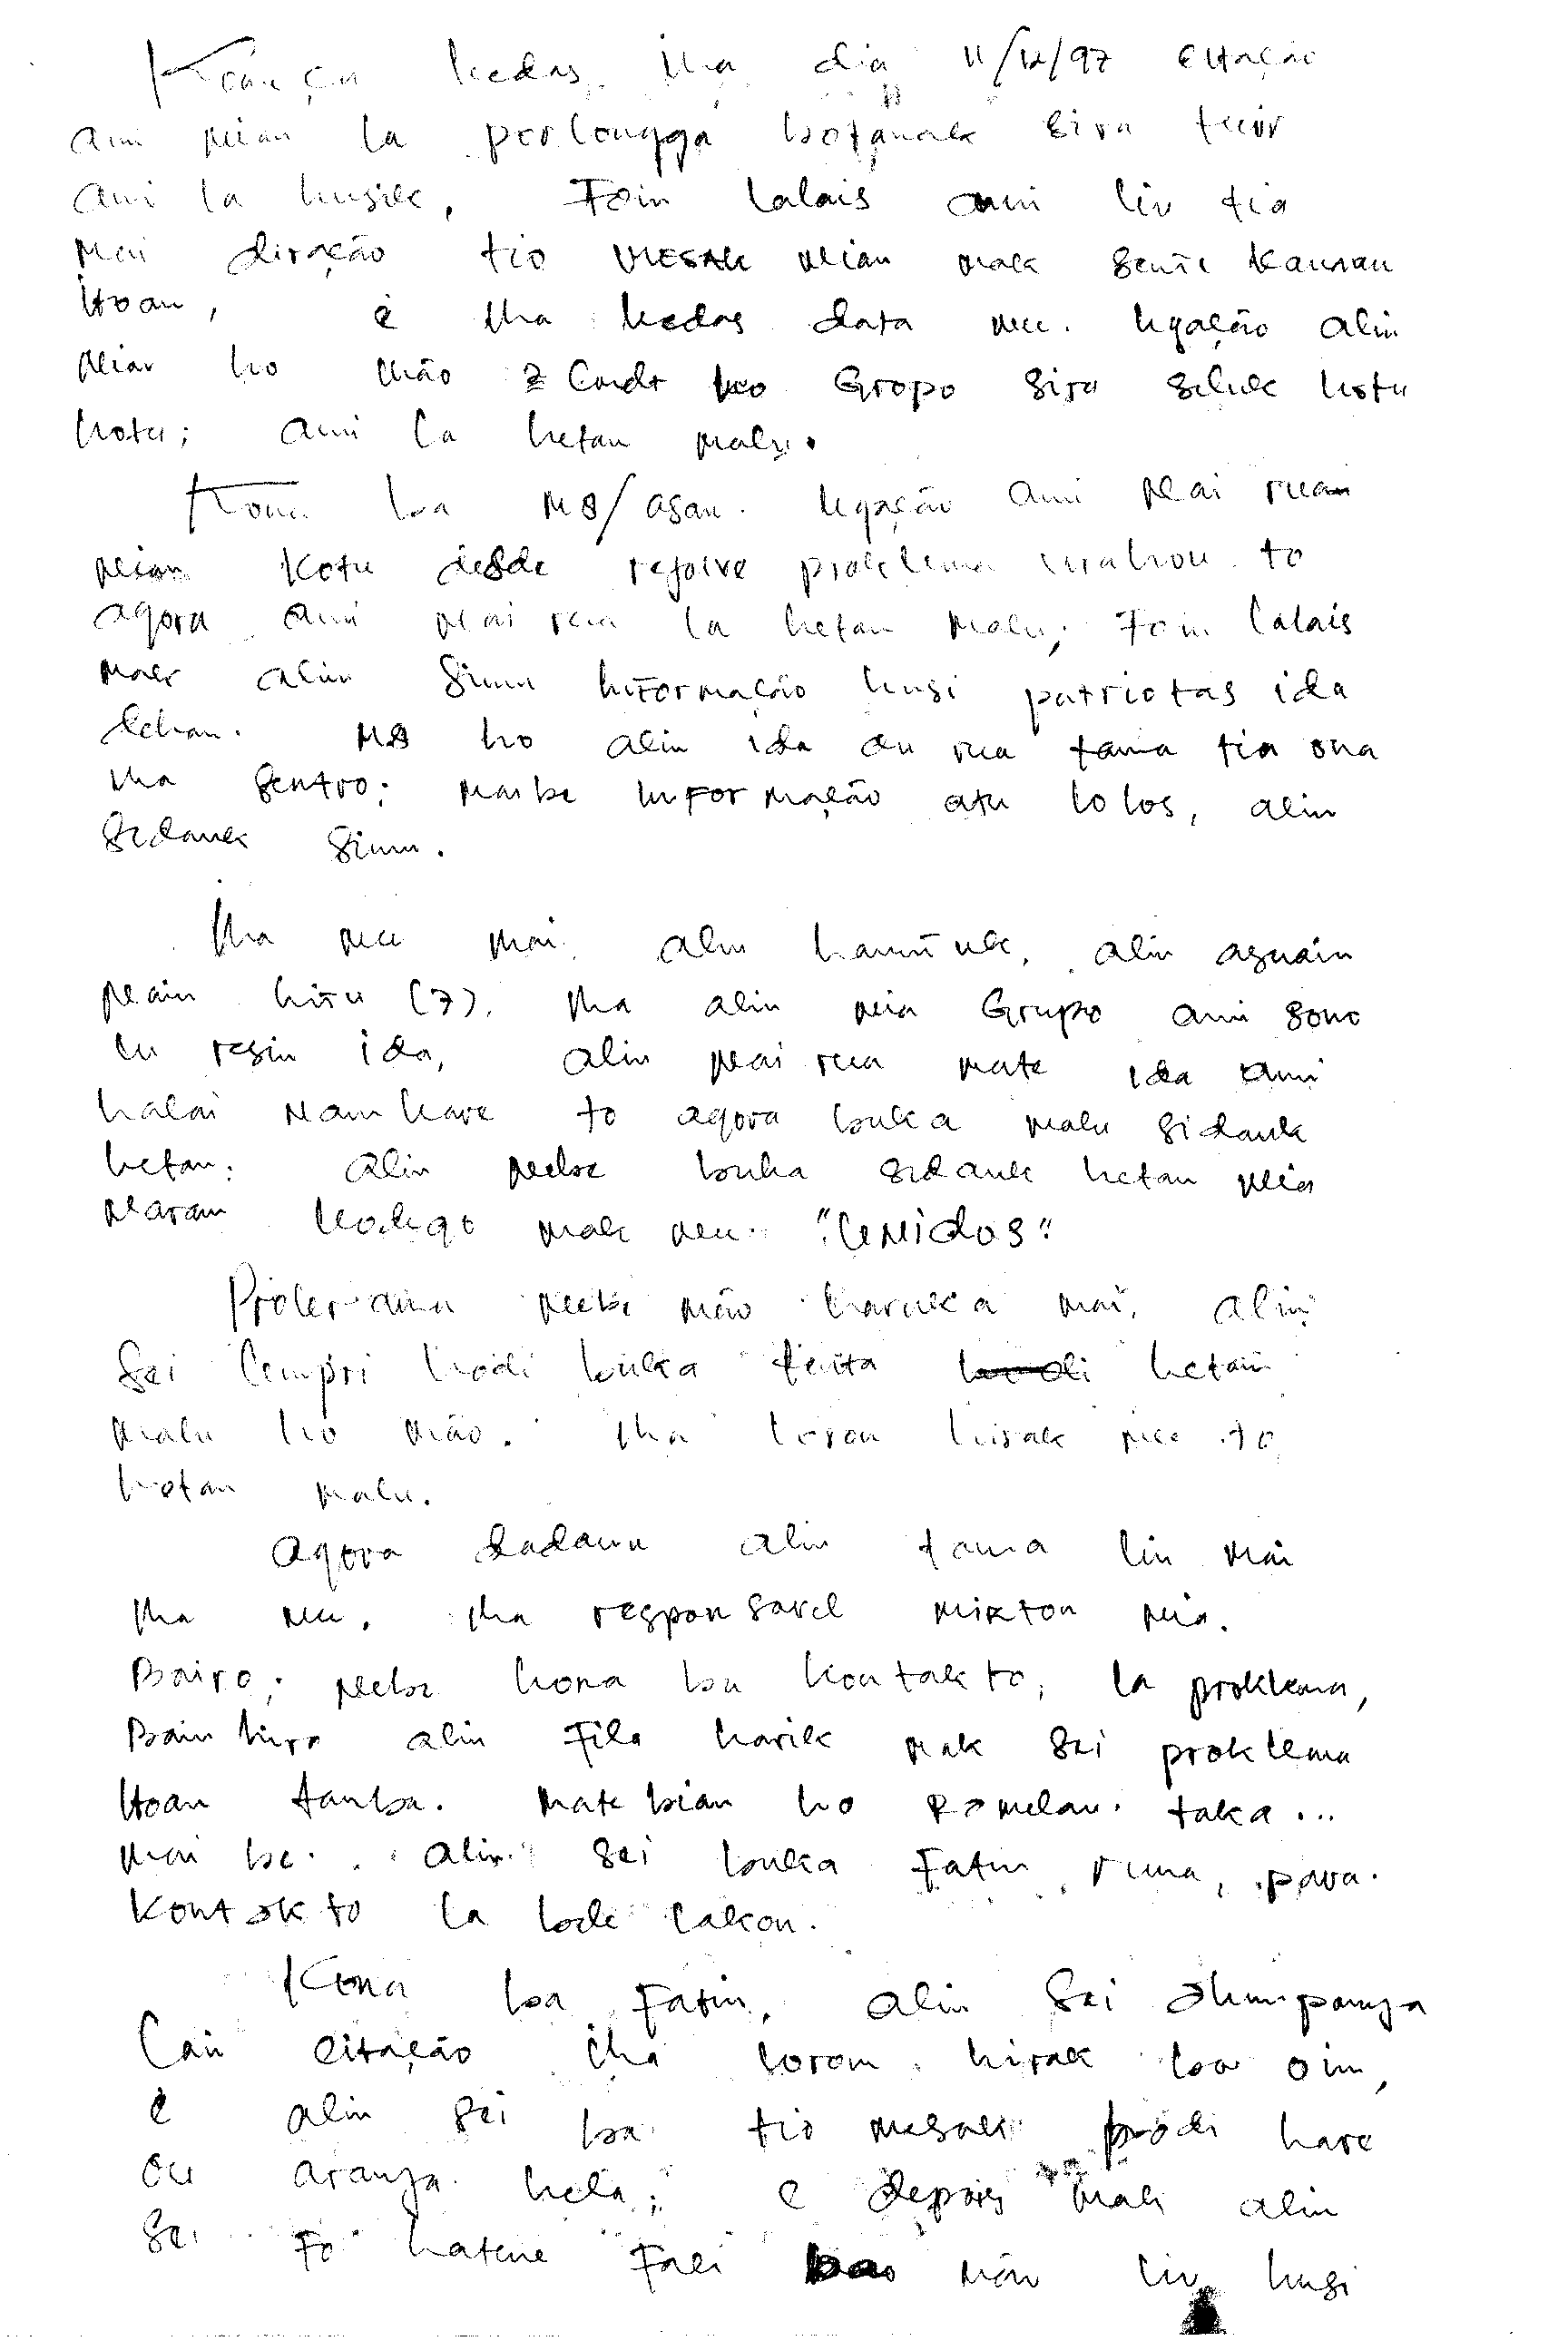 hedas iha dia 11/12/97 citação
ami nian la perlongga botanak sira tuir
ami la husik, Foin lalais ami liu tia
mai diração tio MESAK nian mak senti kaunan
itoan, e iha hedas data nee. ligação alin
nian ho mão 2 Cmdt ho Gropo sira seluk hotu
hotu; ami la hetan malu.
Kona ba MB/asan. ligação ami nai ruan
nian Kotu desde resolve problema to
agora ami nai rua la hetan malu; Foin lalais
mak alin simu informação husi patriotas ida
dehan. MB ho alin ida ou rua tama tia ona
iha sentro; maibe informação atu lolos, alin
sedauk simu.
Iha nee mai alin hamutuk, alin asuain
nain hitu (7). Iha alin nia Grupo ami sono
lu resin ida, alin nai rua mate ida ami
halai namkare to agora buka malu sidauk
hetan. alin nebe buka sedauk hetan nia
naran kodigo mak nee "UNidos".
nebe mão haruka mai, alin
sei Cempri hodi buka tenta hodi hetan
malu ho mão. Iha loron hirak nee to
hetan malu.
Agora dadaun alin tama liu mai
iha nee, iha responsavel mikton nia.
Bairo; nebe kona ba kontakto, la problema,
Bainhira alin fila karik mak sei problema
itoan tamba. Mate bian ho Ramelau taka...
mai be alin sei buka Fatin ruma, para
Kontakto la bele lakon.
Kona ba Fatin, alin sei akumpanya
lai citação iha loron hirak ba oin,
e alin sei ba tio mesak hodi hare
ou aranja hela; e depois mak alin
sei fo hatene fali ba mão liu husi